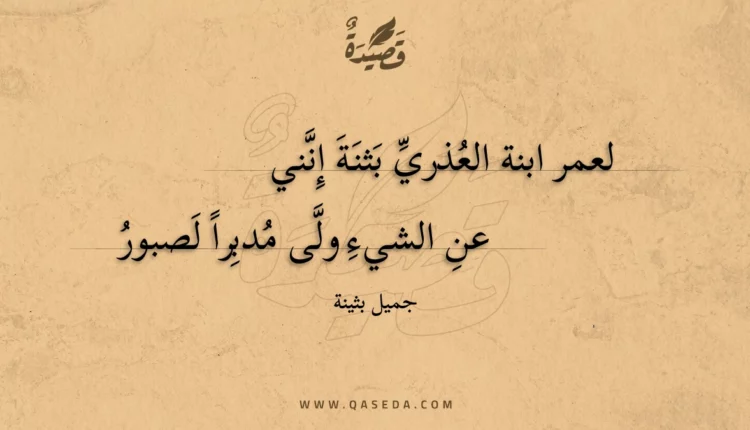 قَصِيدَةٌ
لعمر ابنة العُذريِّ بَثنَةَ إِنَّني
عنِ الشيءِ ولَّى مُدبِراً لَصبورُ
جميل بثينة
WWW.QASEDA.COM